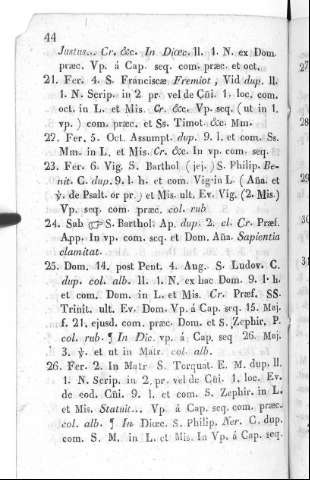 44
Justus... Cr. &c. In Diœc. ll. 1. N. ex Dom
præc. Vp. á Cap. seq. com. præc. et oct.
21. Fer. 4. S. Franciscæ Fremiot, Vid dup. ll.
1. N. Scrip. in 2. pr. vel de Cñi. 1. loc. com.
oct. in L. et Mis. Cr. &c. Vp. seq. (ut in 1.
vp.) com. præc. et Ss. Timot. &c. Mm.
22. Fer. 5. Oct. Assumpt. dup. 9. l. et com. Ss.
Mm. in L. et Mis. Cr. &c. In vp. com. seq.
23. Fer. 6. Vig. S. Barthol (jej.) S. Philip. Be-
nit. C. dup. 9. l. h. et com. Vig in L. (Aña. et
℣. de Psalt. or pr.) et Mis. ult. Ev. Vig. (2. Mis.)
Vp. seq. com. præc. col. rub
24. Sab ☞ S. Barthol. Ap. dup. 2. cl. Cr. Præf.
App. In vp. com. seq. et Dom. Aña. Sapientia
clamitat.
25. Dom. 14. post Pent. 4. Aug. S. Ludov. C.
dup. col. alb. ll. 1. N. ex hac Dom. 9. l. h.
et com. Dom. in L. et Mis. Cr. Præf. SS.
Trinit. ult. Ev. Dom. Vp. á Cap. seq. 15. Maj.
f. 21. ejusd. com. præc. Dom. et S. Zephir. P.
col. rub. ¶ In Dic. vp. á Cap. seq. 26. Maj.
3. ℣. et ut in Matr. col. alb.
26. Fer. 2. In Matr S. Torquat. E. M. dup. ll.
1. N. Scrip. in 2. pr. vel de Cñi. 1. loc. Ev.
de eod. Cñi. 9. l. et com. S. Zephir. in L.
et Mis. Statuit... Vp. á Cap. seq. com. præc.
col. alb. ¶ In Diœc. S. Philip. Ner. C. dup.
com. S. M. in L. et Mis. In Vp. á Cap. seq.
27
31